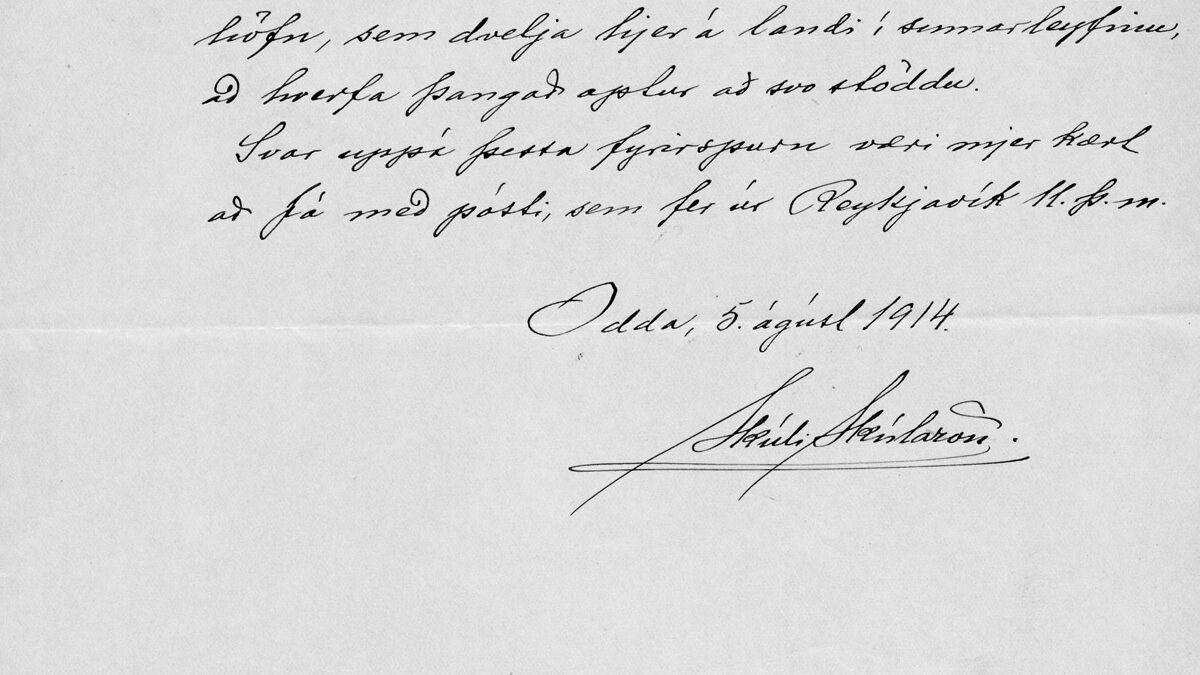 höfn, sem dvelja hjer á landi í sumarleyfinu,
að hverfa þangað aptur að svo stöddu.
Svar uppá þessa fyrirspurn væri mjer kært
að fá með pósti, sem fer úr Reykjavík 11. þ. m.
Odda, 5. ágúst 1914.
Skúli Skúlason.